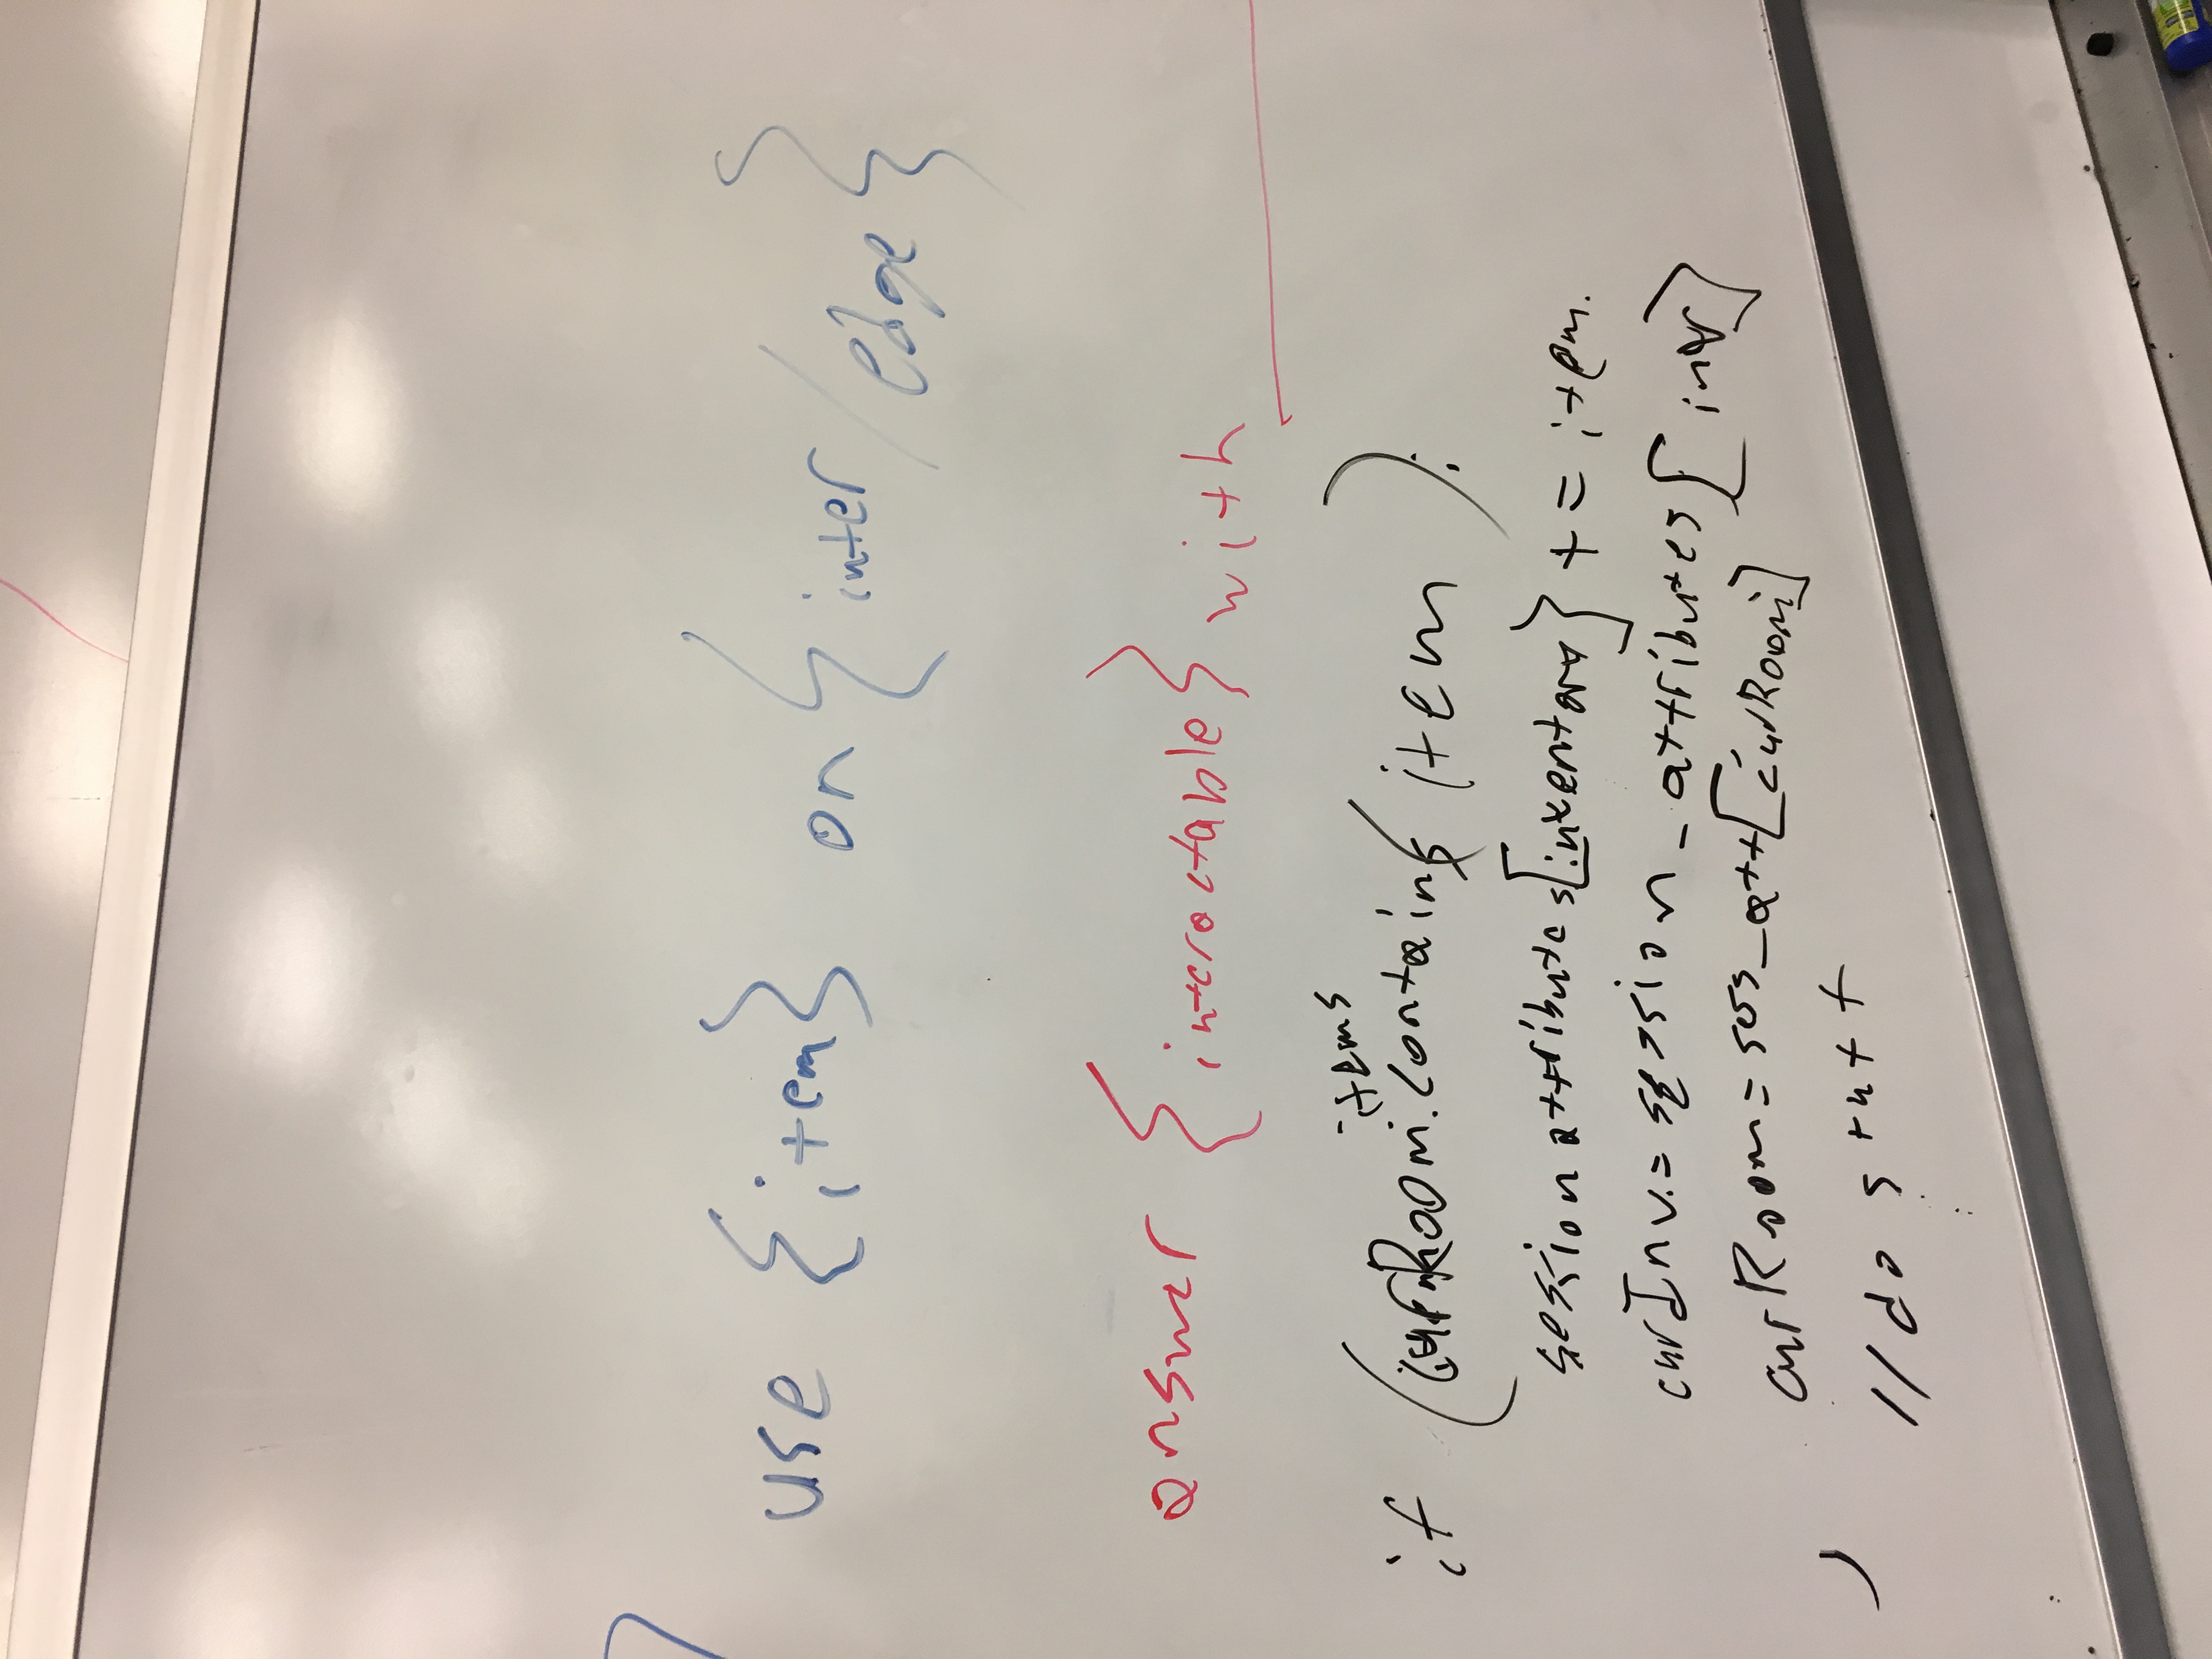 use {item} on {inter/edge}
answer {interactable} with
items
if (curRoom.contains(item):
sessionattributes[inventory} += item.
curInv.= session_attributes[inv]
curRoom= ses_att[curRoom]
//do stuff